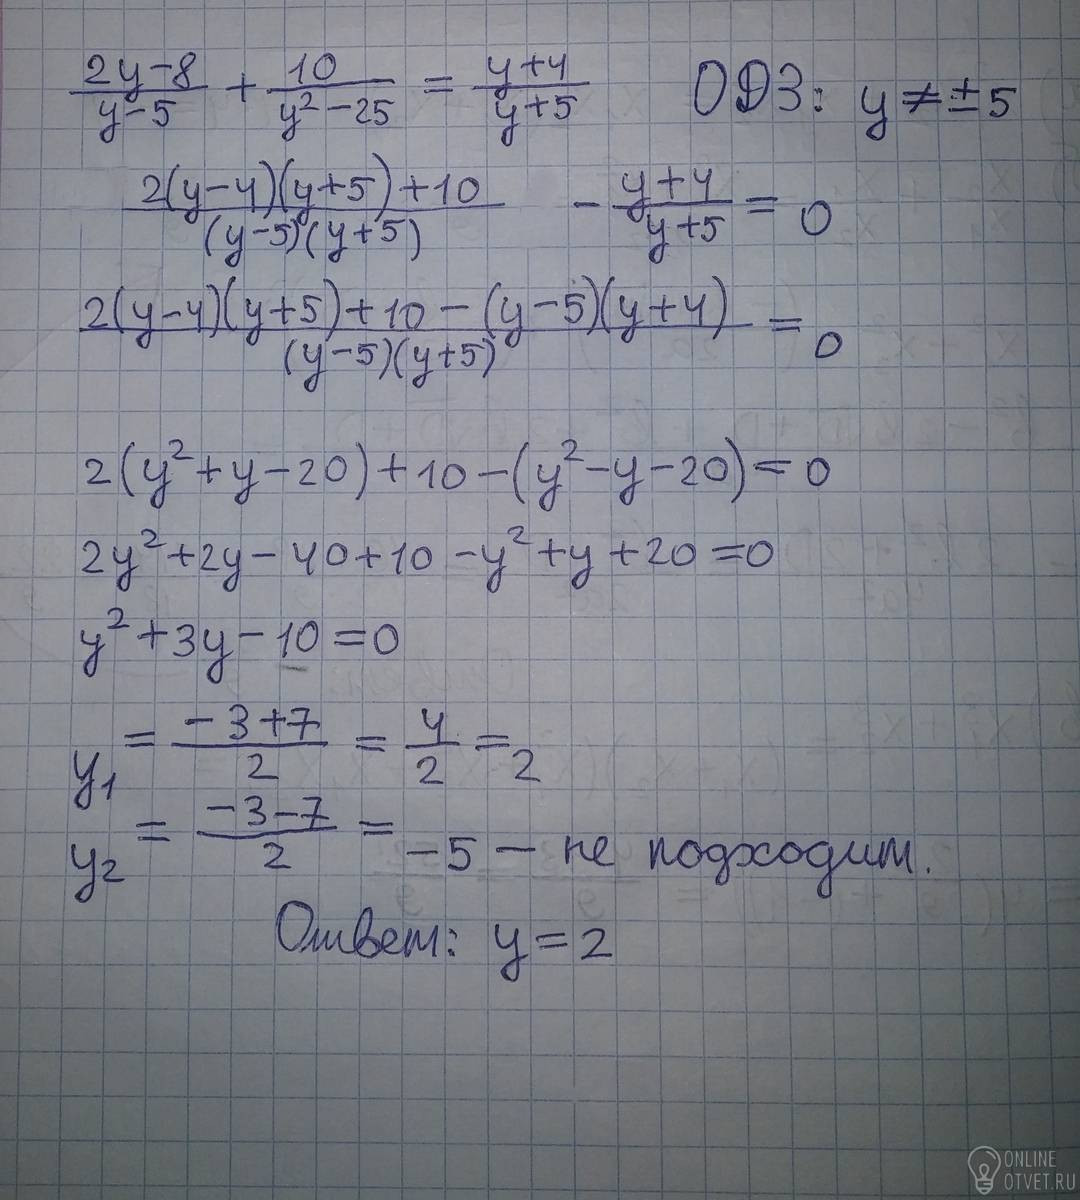 (2y-8)/(y-5) + 10/(y²-25) = (y+4)/(y+5) ОДЗ: y ≠ ±5
(2(y-4)(y+5)+10)/((y-5)(y+5)) - (y+4)/(y+5) = 0
(2(y-4)(y+5)+10-(y-5)(y+4))/((y-5)(y+5)) = 0
2(y²+y-20)+10-(y²-y-20)=0
2y²+2y-40+10-y²+y+20=0
y²+3y-10=0
y₁ = (-3+7)/2 = 4/2 = 2
y₂ = (-3-7)/2 = -5 - не подходит.
Ответ: y=2
ONLINE
OTVET.RU